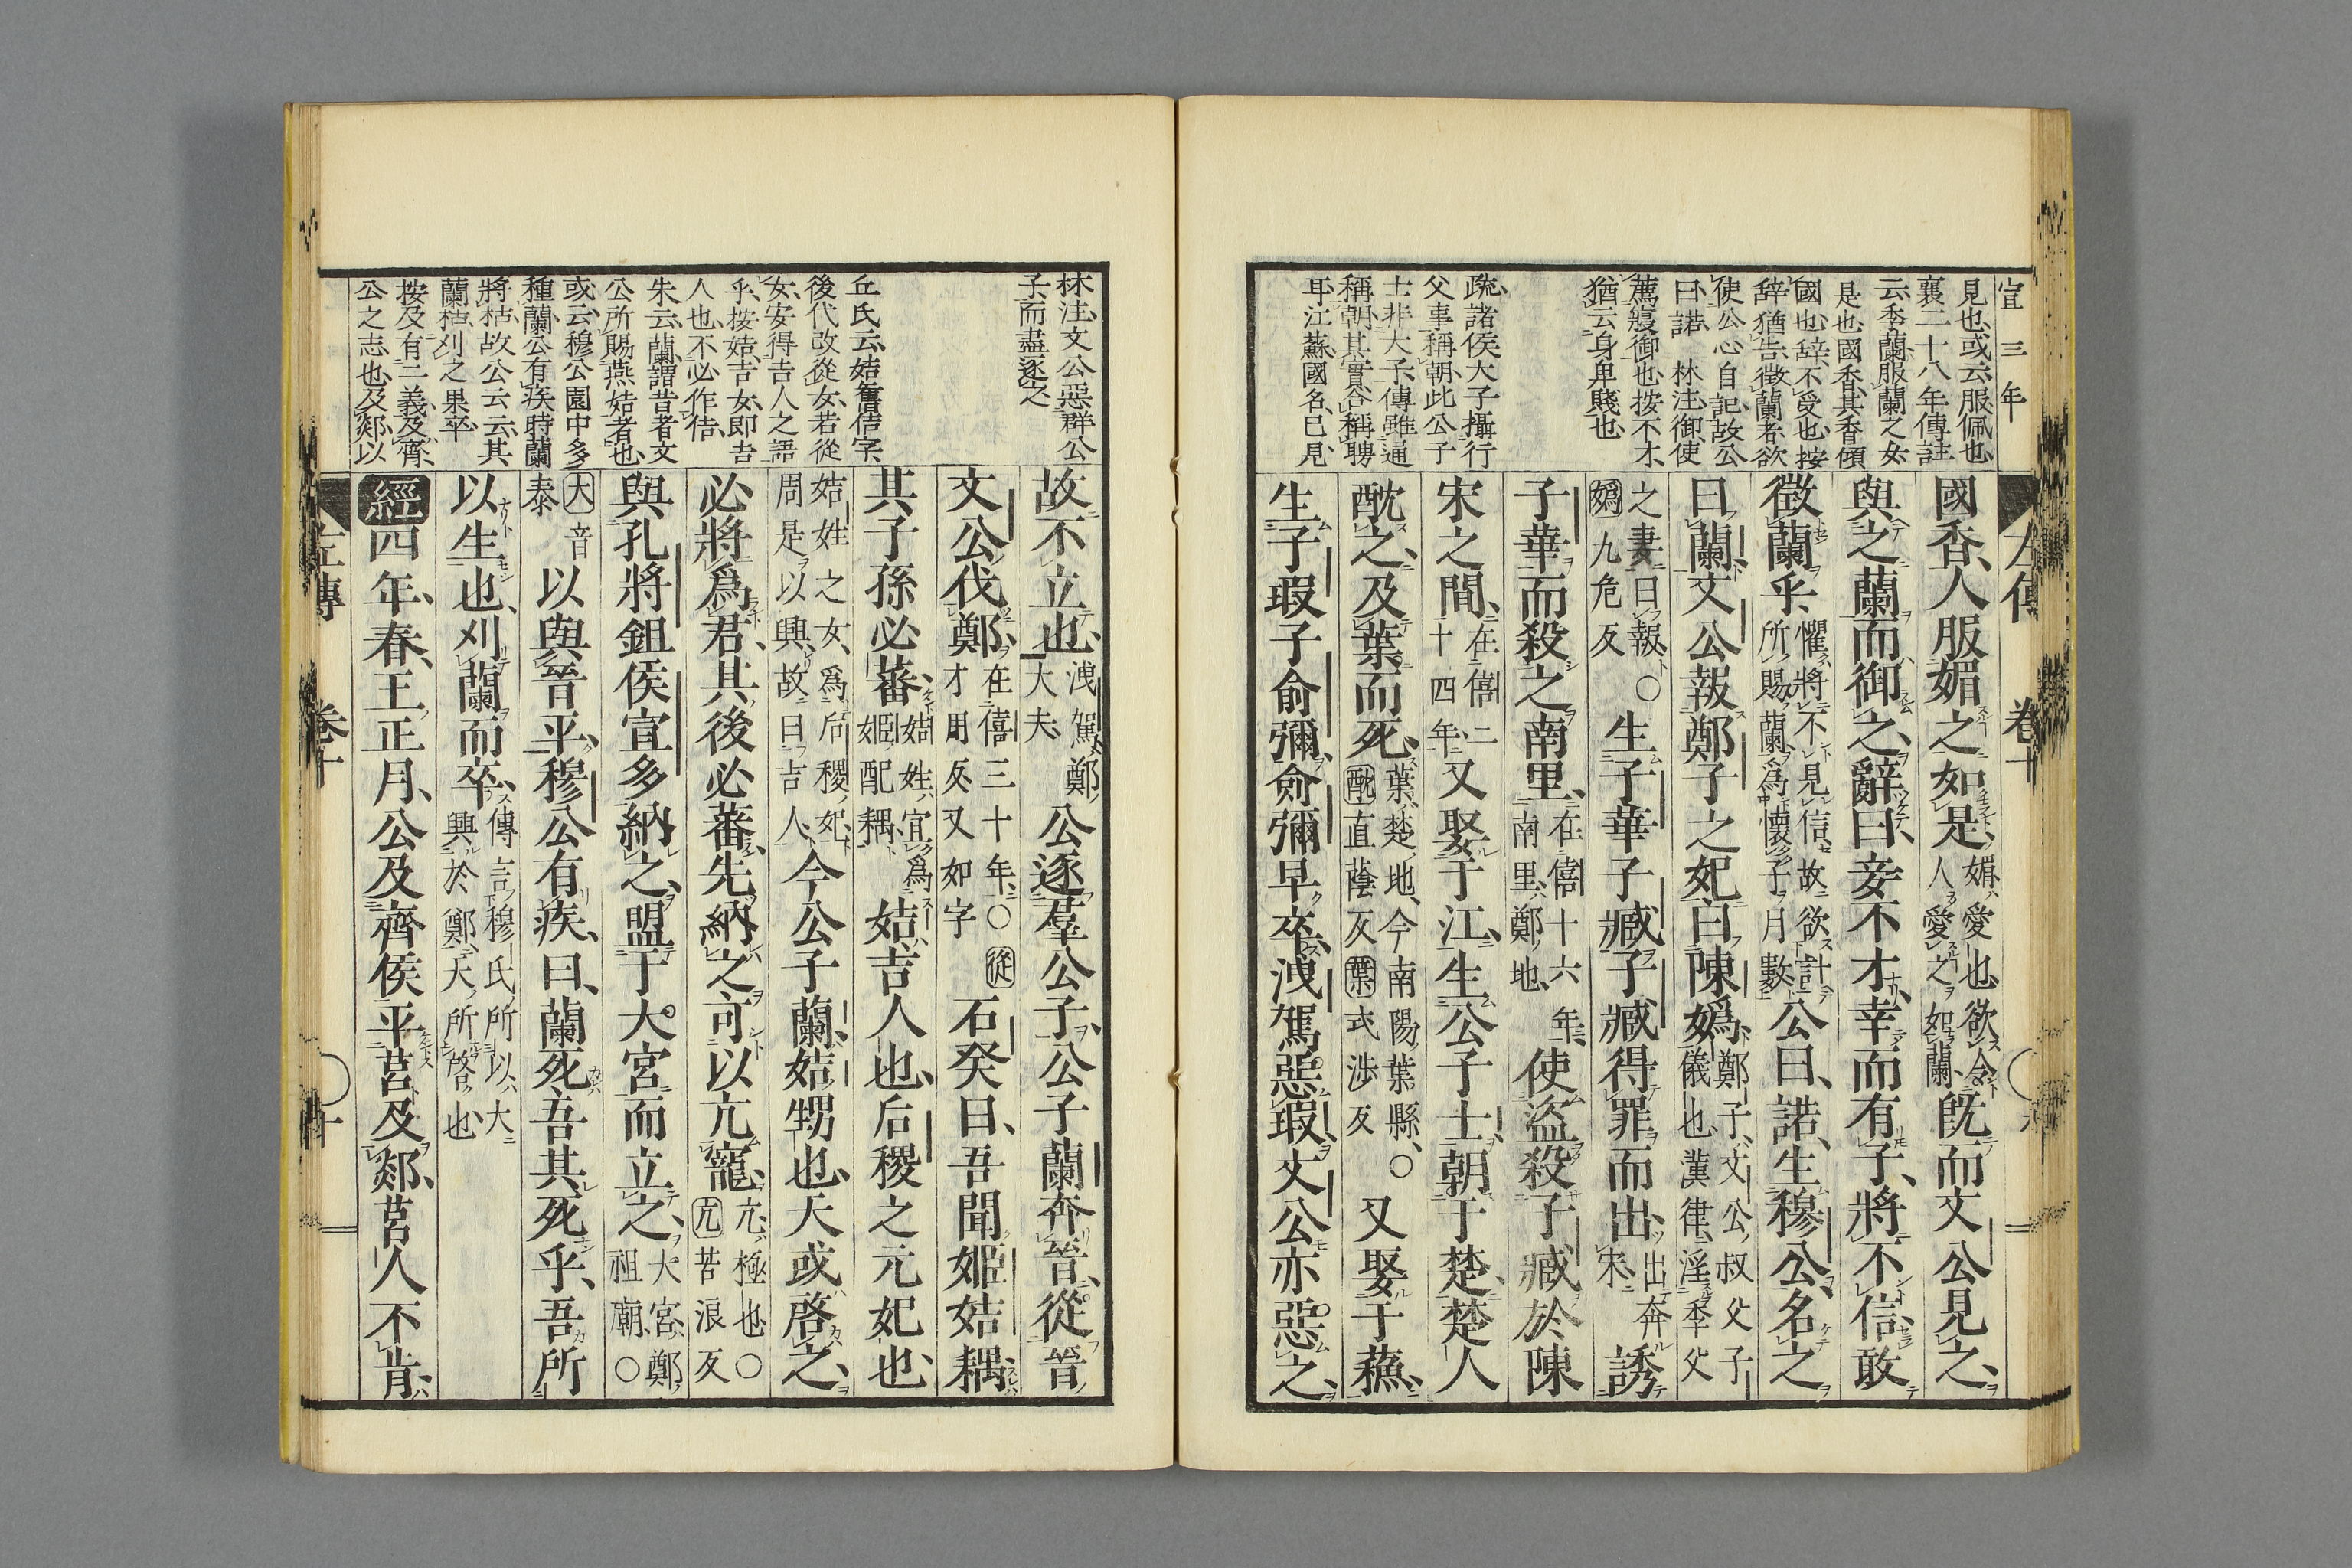 宣三年
見也或云服佩也
襄二十八年傳註
云季蘭服蘭之女
是也國香其香傾
國也辭不受也按
辭猶告徵蘭者欲
使公心自記故公
曰諾　林注御使
薦寢御也按不才
猶云身卑賤也
疏諸侯大子攝行
父事稱朝此公子
士非大子傳雖通
稱朝其實合稱聘
耳江蘇國名巳見
左傳　卷十
國香人服媚之如是媚愛也欲令人愛之如蘭旣而文公見之
與之蘭而御之辭曰妾不才幸而有子將不信敢
徵蘭乎懼將不見信故欲計所賜蘭爲懷子月數公曰諾生穆公名之
曰蘭文公報鄭子之妃曰陳嬀鄭子文公叔父子儀也漢律淫季父
之妻曰報○嬀九危反生子華子臧子臧得罪而出出奔宋誘
子華而殺之南里在僖十六年南里鄭地使盜殺子臧於陳
宋之間在僖二十四年又娶于江生公子士朝于楚楚人
酖之及葉而死葉楚地今南陽葉縣○酖直蔭反葉式涉反又娶于蘇
生子瑕子俞彌俞彌早卒洩駕惡瑕文公亦惡之
林注文公惡群公
子而盡逐之
丘氏云姞舊佶字
後代改從女若從
女安得吉人之語
乎按姞吉女即吉
人也不必作佶
朱云蘭謂昔者文
公所賜燕姞者也
或云穆公園中多
種蘭公有疾時蘭
將枯故公云云其
蘭枯刈之果卒
按及有二義及齊
公之志也及郯以
故不立也洩駕鄭大夫公逐羣公子公子蘭奔晉從晉
文公伐鄭在僖三十年○從才用反又如字石癸曰吾聞姬姞耦
其子孫必蕃姞姓宜爲姬配耦姞吉人也后稷之元妃也
姞姓之女爲后稷妃周是以興故曰吉人今公子蘭姞甥也天或啓之
必將爲君其後必蕃先納之可以亢寵亢極也○亢苦浪反
與孔將鉏侯宣多納之盟于大宮而立之大宮鄭祖廟○
大音泰以與晉平穆公有疾曰蘭死吾其死乎吾所
以生也刈蘭而卒傳言穆氏所以大興於鄭天所啓也
經四年春王正月公及齊侯平莒及郯莒人不肯
左傳　卷十　十